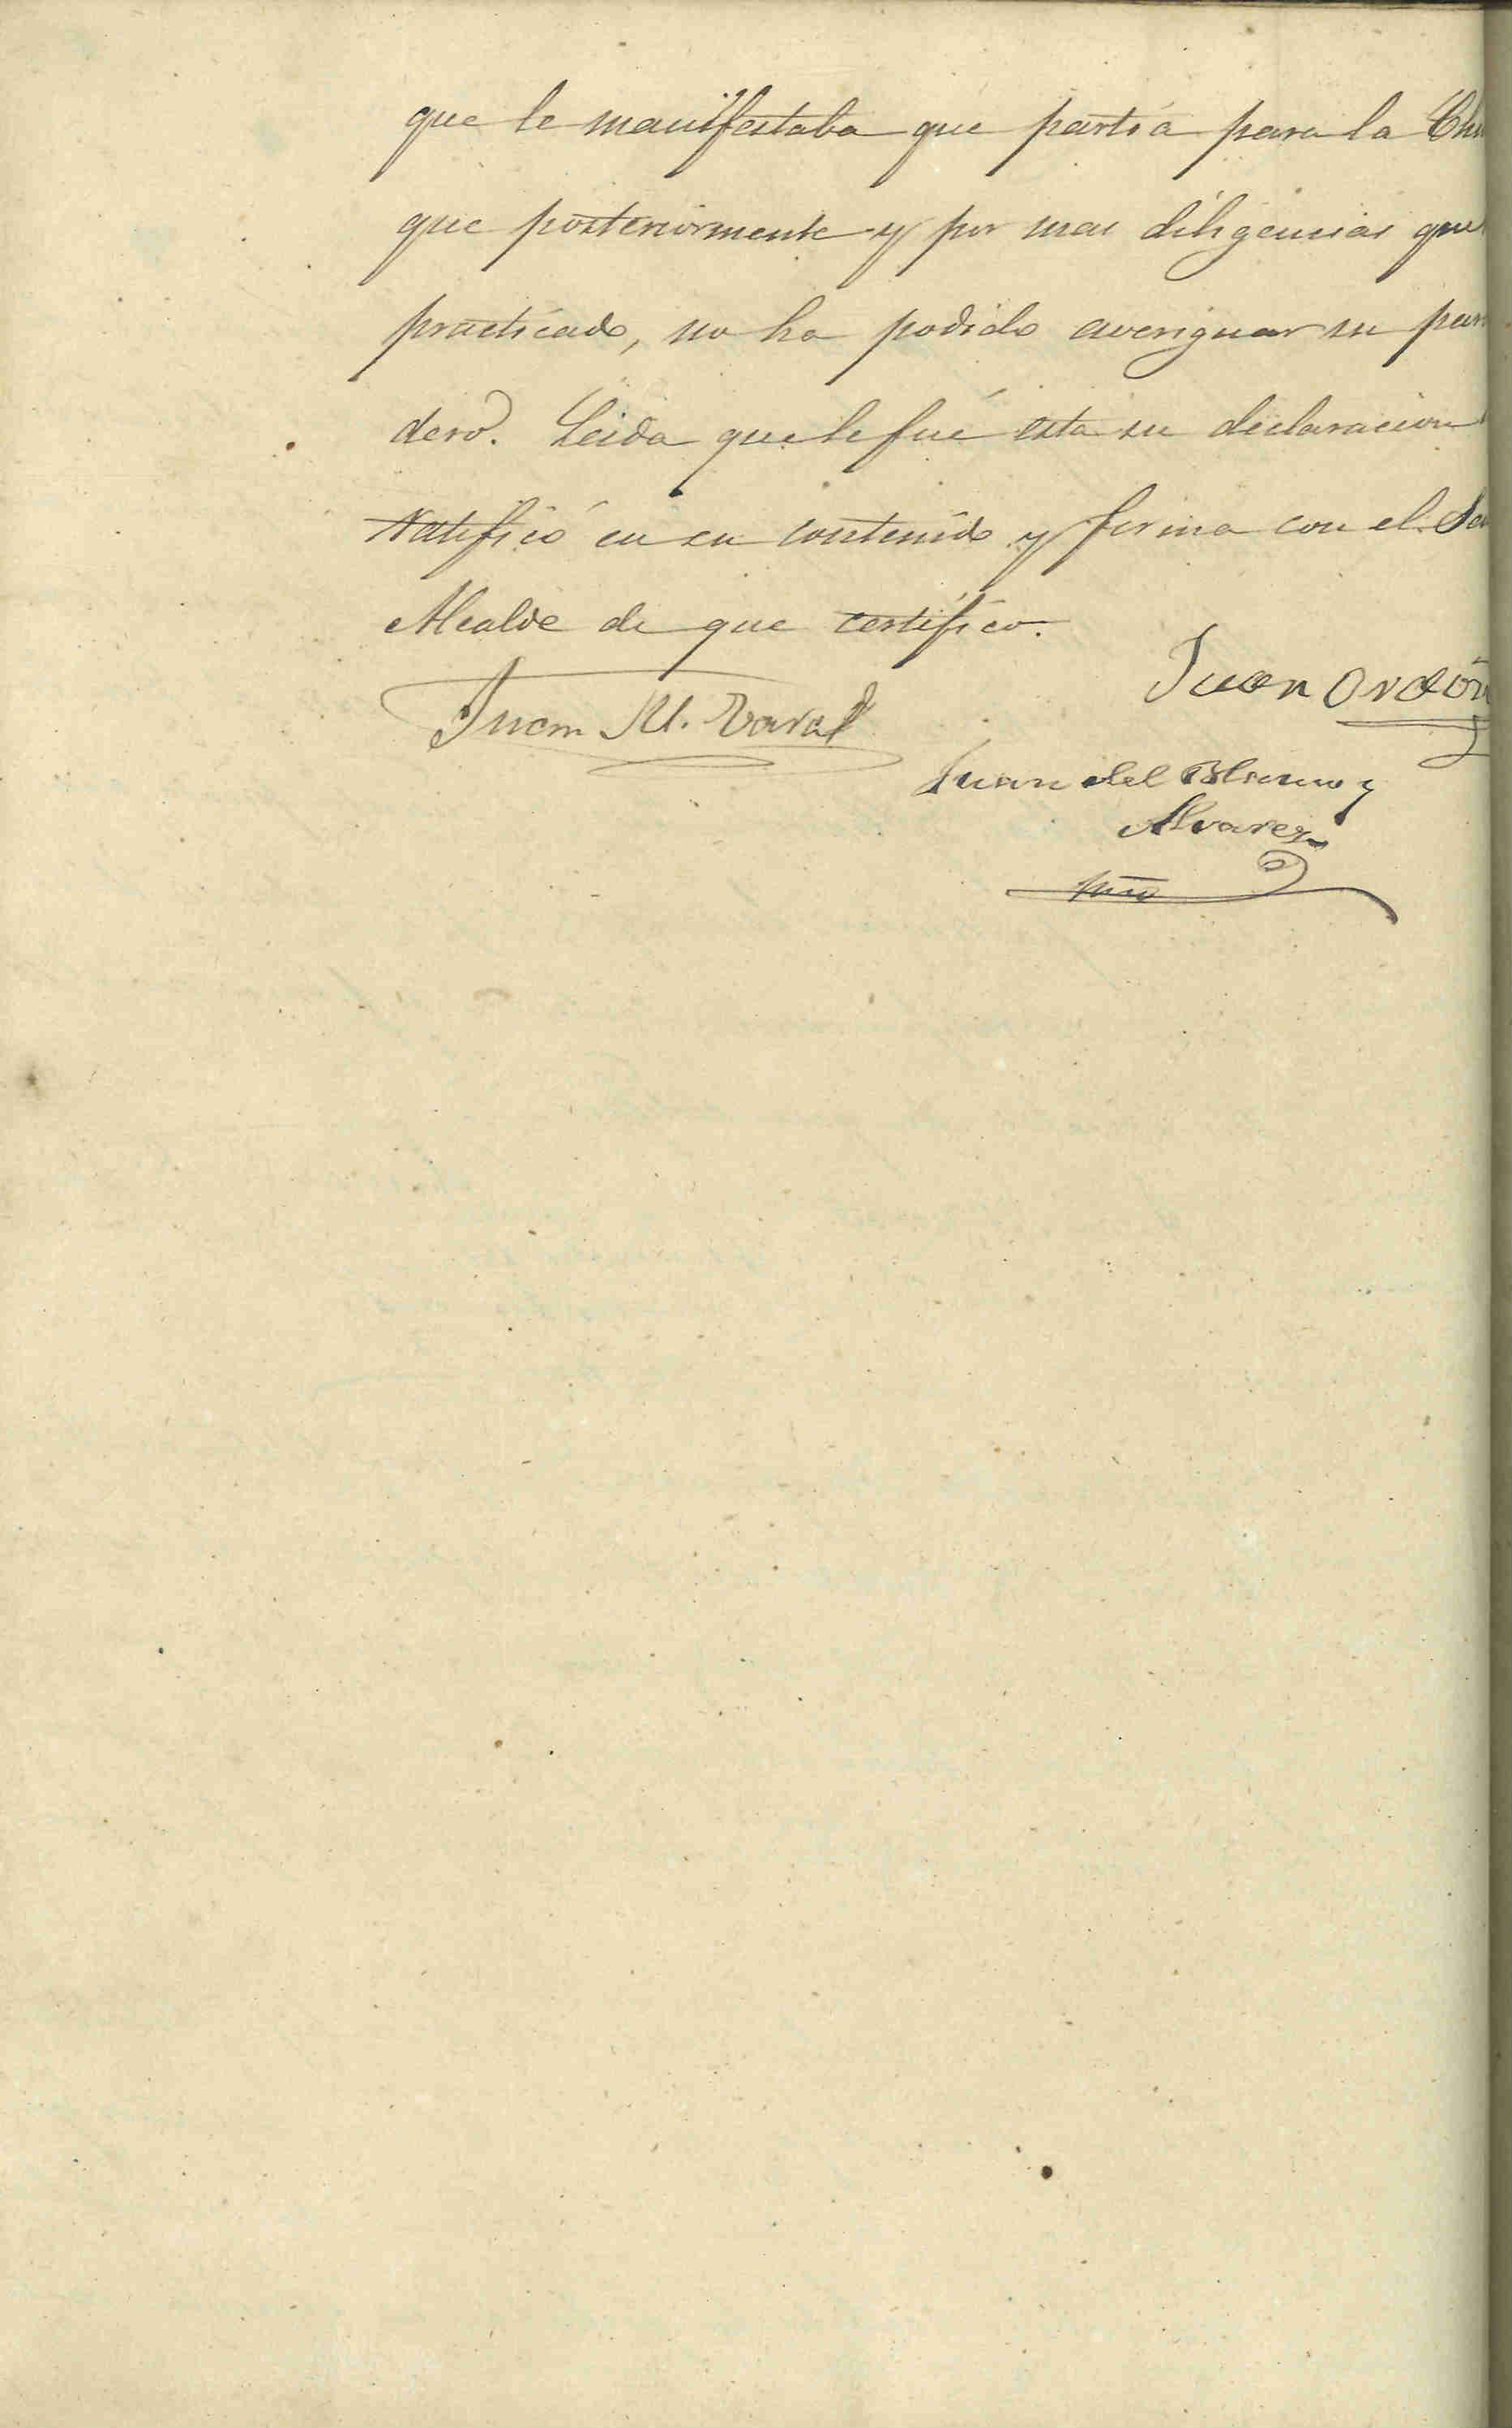 que le manifestaba que partia para la Ch
que posteriormente y por mas diligencias que
practicado, no ha podido averiguar su para
dero. Leida que le fué esta su declaracion
ratificó en su contenido y firma con el Se
Alcalde de que certifico.
Juan Ordoñ
Juan M.
Juan del Blanco y
Alvarez